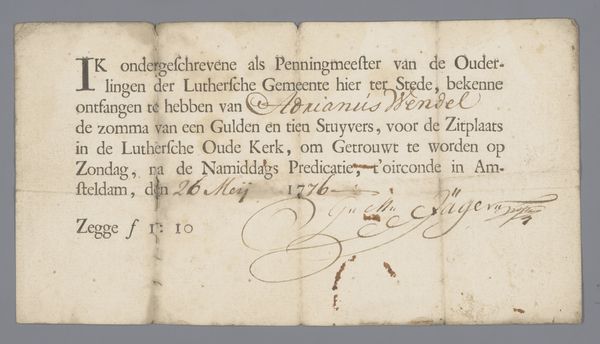 IK ondergeschrevene als Penningmeester van de Ouder-
lingen der Luthersche Gemeente hier ter Stede, bekenne
ontfangen te hebben van Adrianus Wendel
de zomma van een Gulden en tien Stuyvers, voor de Zitplaats
in de Luthersche Oude Kerk, om Getrouwt te worden op
Zondag, na de Namiddags Predicatie, t'oirconde in Am-
steldam, den 26 Meij 1776
Jäger
Zegge f 1: 10